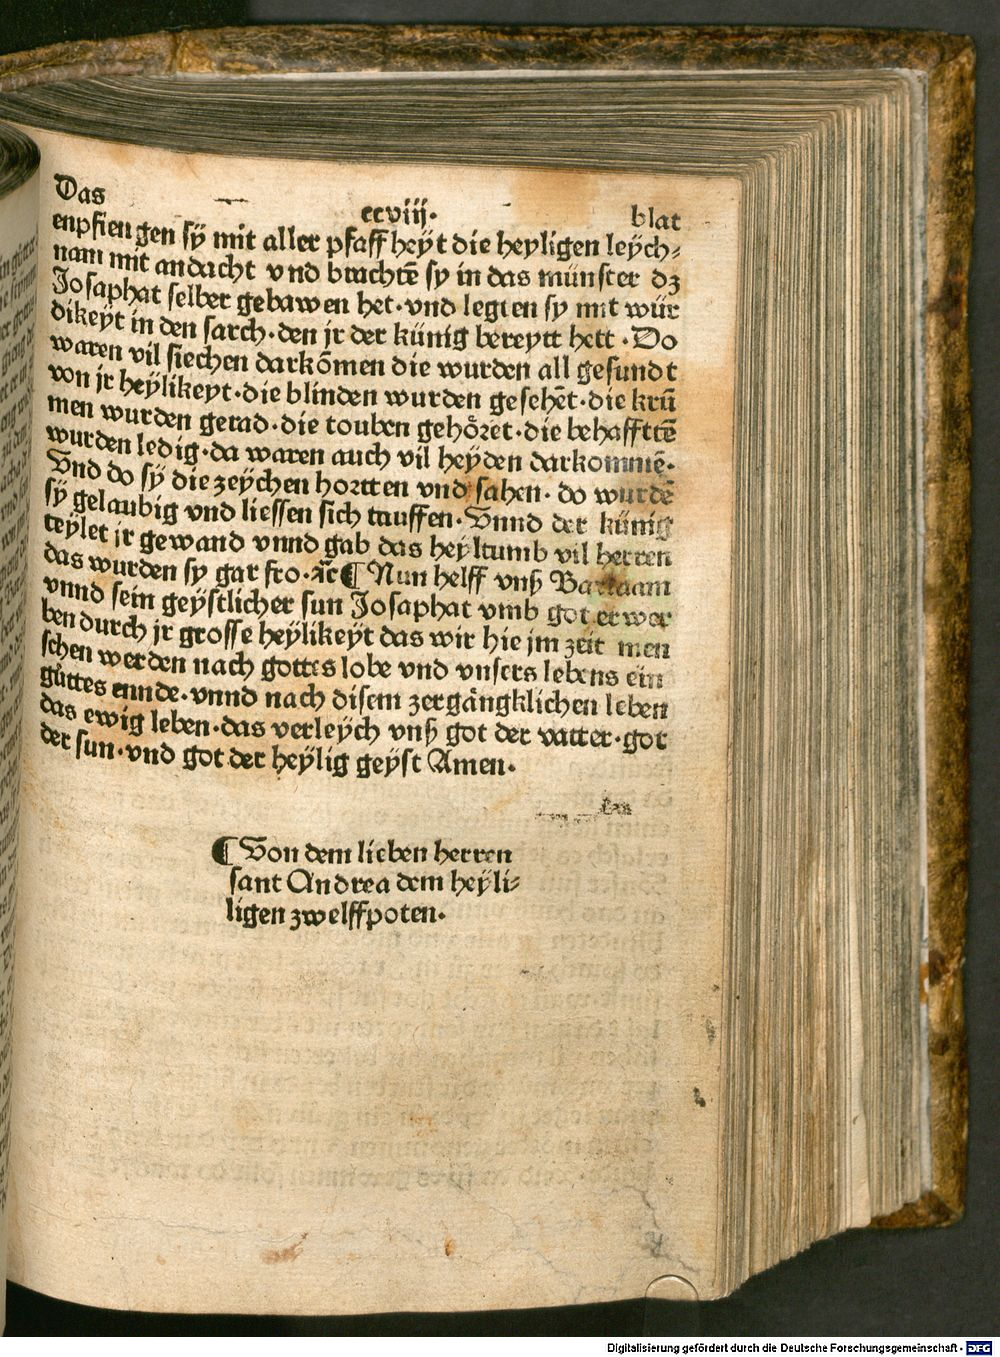 Das ccviij. blat
enpfiengen sÿ mit aller pfaffheÿt die heyligen leÿch⸗
nam mit andacht vnd brachtē sy in das münster dz
Josaphat selber gebawen het·vnd legten sy mit wür
dikeÿt in den sarch·den jr der künig bereytt hett·Do
waren vil siechen darkōmen die wurden all gesundt
von jr heÿlikeyt·die blinden wurden gesehēt·die krū
men wurden gerad·die touben gehöret·die behafftē
wurden ledig·da waren auch vil heÿden darkommē·
Vnd do sÿ die zeÿchen hortten vnd sahen·do wurdē
sÿ gelaubig vnd liessen sich tauffen·Vnnd der künig
teÿlet jr gewand vnnd gab das heÿltumb vil herren
das wurden sy gar fro·⁊c̄ ¶ Nun helff vnß Barlaam
vnnd sein geÿstlicher sun Josaphat vmb got erwer
ben durch jr grosse heÿlikeÿt das wir hie jm zeit men
schen werden nach gottes lobe vnd vnsers lebens ein
gůttes ennde·vnnd nach disem zergängklichen leben
das ewig leben·das verleÿch vnß got der vatter·got
der sun·vnd got der heÿlig geÿst Amen·
¶ Von dem lieben herren
sant Andrea dem heÿli⸗
ligen zwelffpoten·
Digitalisierung gefördert durch die Deutsche Forschungsgemeinschaft - DFG